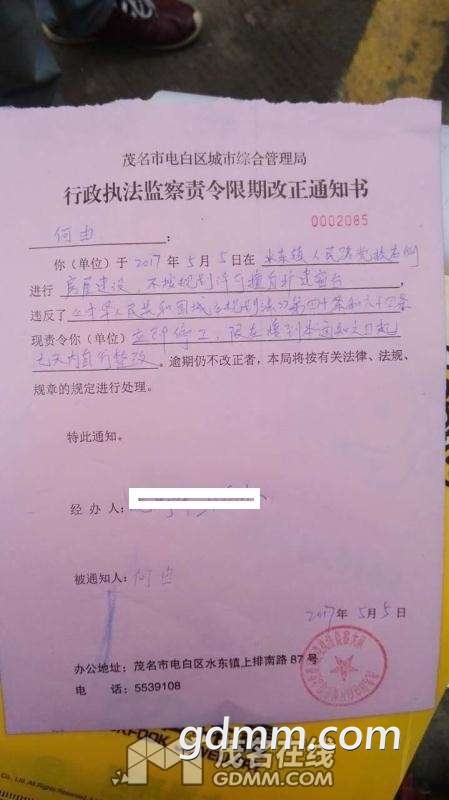 茂名市电白区城市综合管理局
行政执法监察责令限期改正通知书
0002085
何由:
你(单位)于2017年5月5日在水东镇人民路党校右侧
进行房屋建设,不按规划许可擅自外建窗台
违反了《中华人民共和国城乡规划法》第四十条和六十四条
现责令你(单位)立即停工,限在接到本通知之日起
七天内自行整改。逾期仍不改正者,本局将按有关法律、法规、
规章的规定进行处理。
特此通知。
经办人:
被通知人:何由
2017年5月5日
办公地址:茂名市电白区水东镇上排南路87号
电 话:5539108
gdmm.com
茂名在线
GDMM.COM